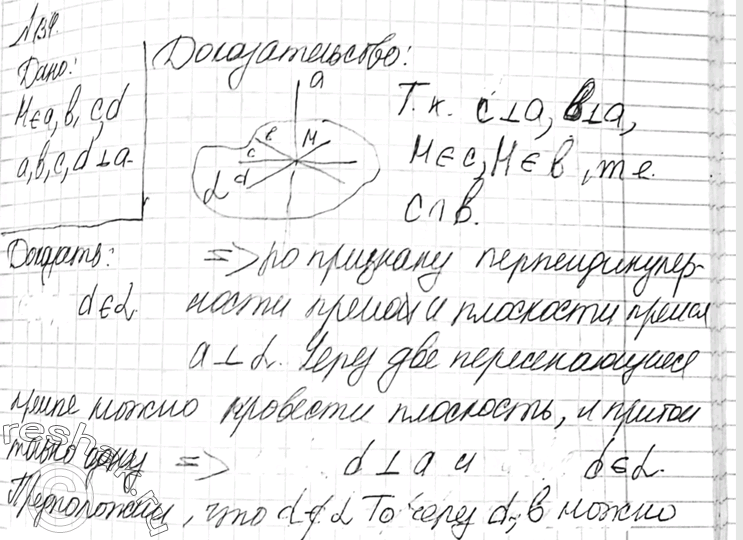 №134.
Дано:
M∈a, в, c, d
a, в, c, d ⊥ a.
Доказать:
d∈α.
Доказательство:
a
в
c
d
M
α
Т.к. c⊥a, в⊥a,
M∈c, M∈в, т.е.
c∩в.
=> по признаку перпендикуляр-
ности прямой и плоскости прямая
a⊥α. Через две пересекающиеся
прямые можно провести плоскость, и притом
только одну => d⊥a и d∈α.
Предположим, что d∉α То через d, в можно
reshak.ru